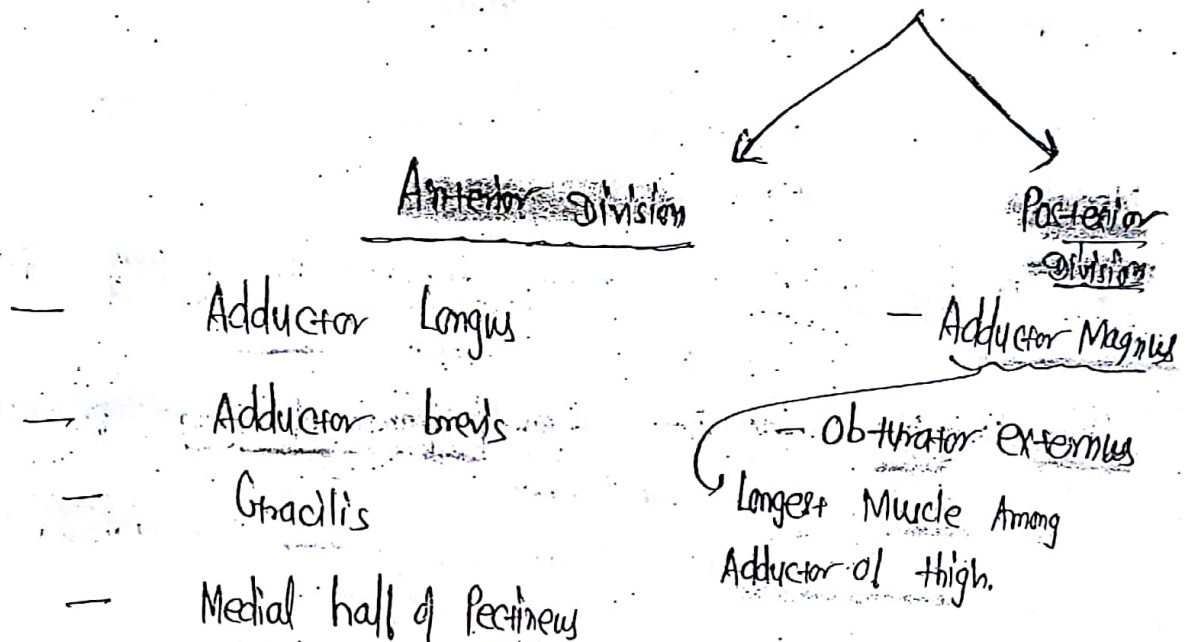 Anterior Division
— Adductor Longus
— Adductor brevis
— Gracilis
— Medial half of Pectineus
Posterior
Division
— Adductor Magnus
— Obturator externus
Longest Muscle Among
Adductor of thigh.